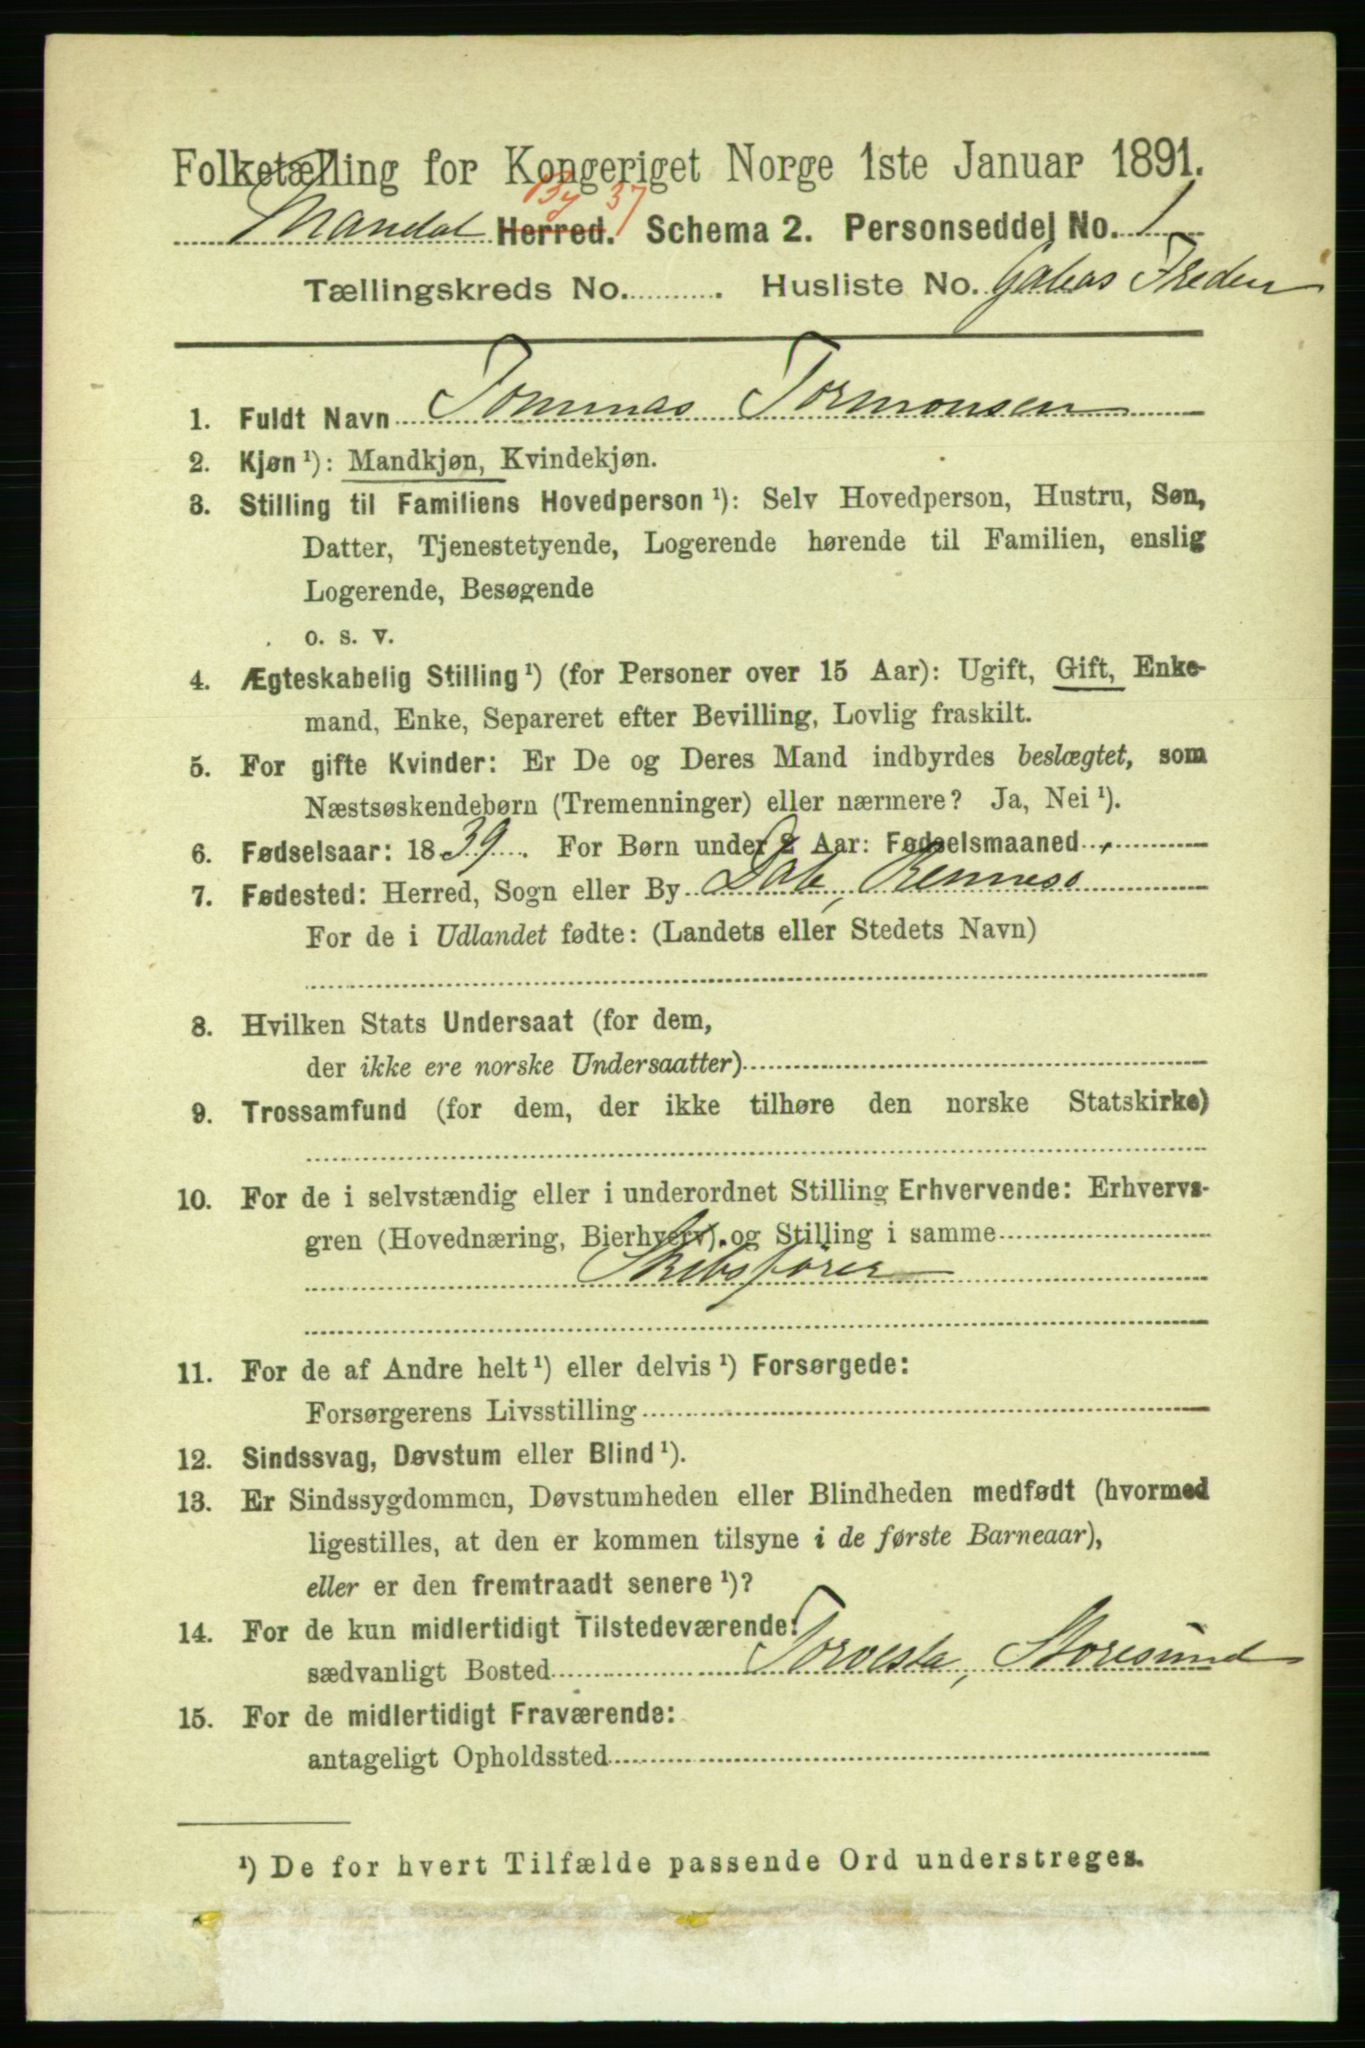 Folketælling for Kongeriget Norge 1ste Januar 1891.
By 37
Mandal Herred. Schema 2. Personseddel No. 1
Tællingskreds No. . Husliste No. Galeas Freden
1. Fuldt Navn Tommas Tormonsen
2. Kjøn ¹): Mandkjøn, Kvindekjøn.
3. Stilling til Familiens Hovedperson ¹): Selv Hovedperson, Hustru, Søn,
Datter, Tjenestetyende, Logerende hørende til Familien, enslig
Logerende, Besøgende
o. s. v.
4. Ægteskabelig Stilling ¹) (for Personer over 15 Aar): Ugift, Gift, Enke-
mand, Enke, Separeret efter Bevilling, Lovlig fraskilt.
5. For gifte Kvinder: Er De og Deres Mand indbyrdes beslægtet, som
Næstsøskendebørn (Tremenninger) eller nærmere? Ja, Nei ¹).
6. Fødselsaar: 1839. For Børn under 2 Aar: Fødselsmaaned
7. Fødested: Herred, Sogn eller By Dale, Rennesø
For de i Udlandet fødte: (Landets eller Stedets Navn)
8. Hvilken Stats Undersaat (for dem,
der ikke ere norske Undersaatter)
9. Trossamfund (for dem, der ikke tilhøre den norske Statskirke)
10. For de i selvstændig eller i underordnet Stilling Erhvervende: Erhvervs-
gren (Hovednæring, Bierhverv) og Stilling i samme
Skibsfører
11. For de af Andre helt ¹) eller delvis ¹) Forsørgede:
Forsørgerens Livsstilling
12. Sindssvag, Døvstum eller Blind ¹).
13. Er Sindssygdommen, Døvstumheden eller Blindheden medfødt (hvormed
ligestilles, at den er kommen tilsyne i de første Barneaar),
eller er den fremtraadt senere ¹)?
14. For de kun midlertidigt Tilstedeværende:
sædvanligt Bosted Torvesta, Storesund
15. For de midlertidigt Fraværende:
antageligt Opholdssted
¹) De for hvert Tilfælde passende Ord understreges.